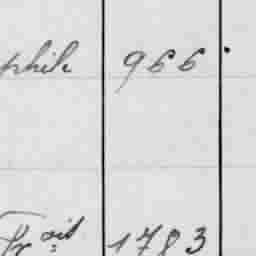 phile 966
Frois 1783